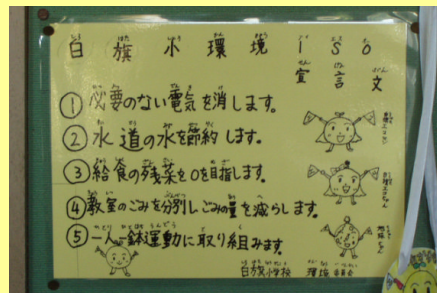 白旗小環境ISO
宣言文
①必要のない電気を消します。
②水道の水を節約します。
③給食の残菜を0を目指します。
④教室のごみを分別しごみの量を減らします。
⑤一人一鉢運動に取り組みます。
白旗小学校 環境委員会